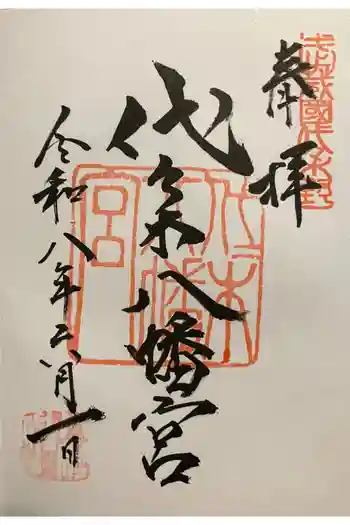 奉拝
武蔵國代々木野
代々木八幡宮
代々木八幡宮
令和八年二月一日